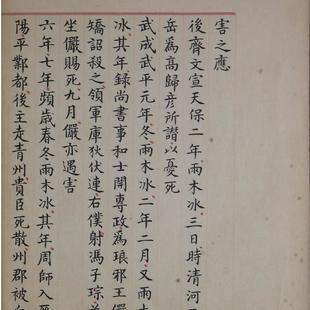 害之應
後齊文宣天保二年雨木冰三日時清河王
岳為高歸彥所譖以憂死
武成武平元年冬雨木冰二年二月又雨木
冰其年録尚書事和士開專政為琅邪王儼
矯詔殺之領軍庫狄伏連右僕射馮子琮並
坐儼賜死九月儼亦遇害
六年七年頻歲春冬雨木冰其年周師入晉
陽平鄴都後主走青州貴臣死散州郡被兵